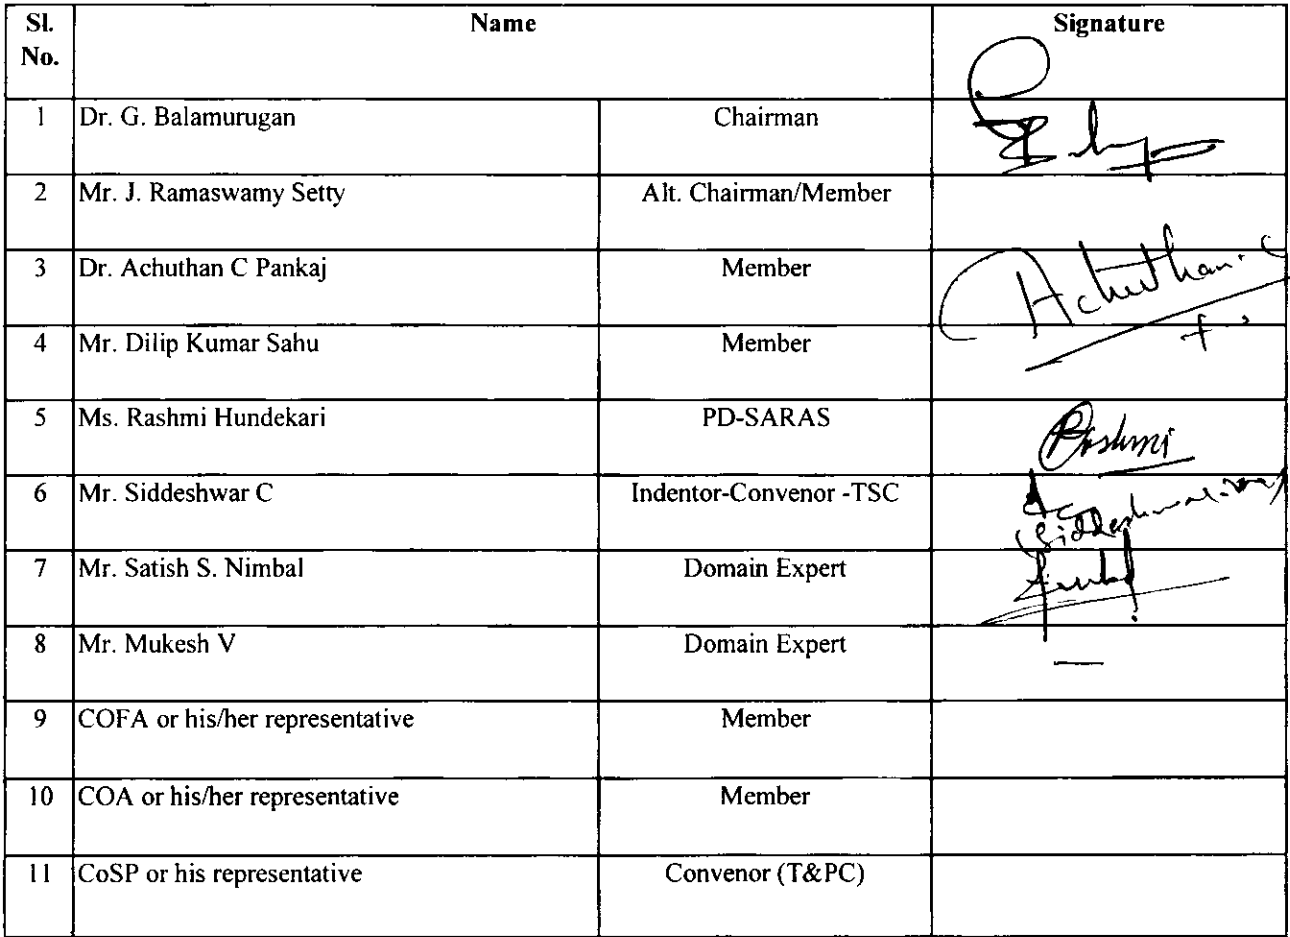 Sl. No. Name Signature
1 Dr. G. Balamurugan Chairman
2 Mr. J. Ramaswamy Setty Alt. Chairman/Member
3 Dr. Achuthan C Pankaj Member Achuthan. C
4 Mr. Dilip Kumar Sahu Member
5 Ms. Rashmi Hundekari PD-SARAS Rashmi
6 Mr. Siddeshwar C Indentor-Convenor -TSC
7 Mr. Satish S. Nimbal Domain Expert
8 Mr. Mukesh V Domain Expert —
9 COFA or his/her representative Member
10 COA or his/her representative Member
11 CoSP or his representative Convenor (T&PC)